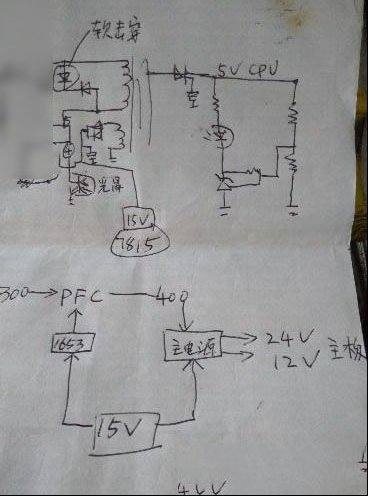 5V CPU
空
空
光耦
15V
7815
300→PFC—400
1653
主电源
24V
12V
主板
15V